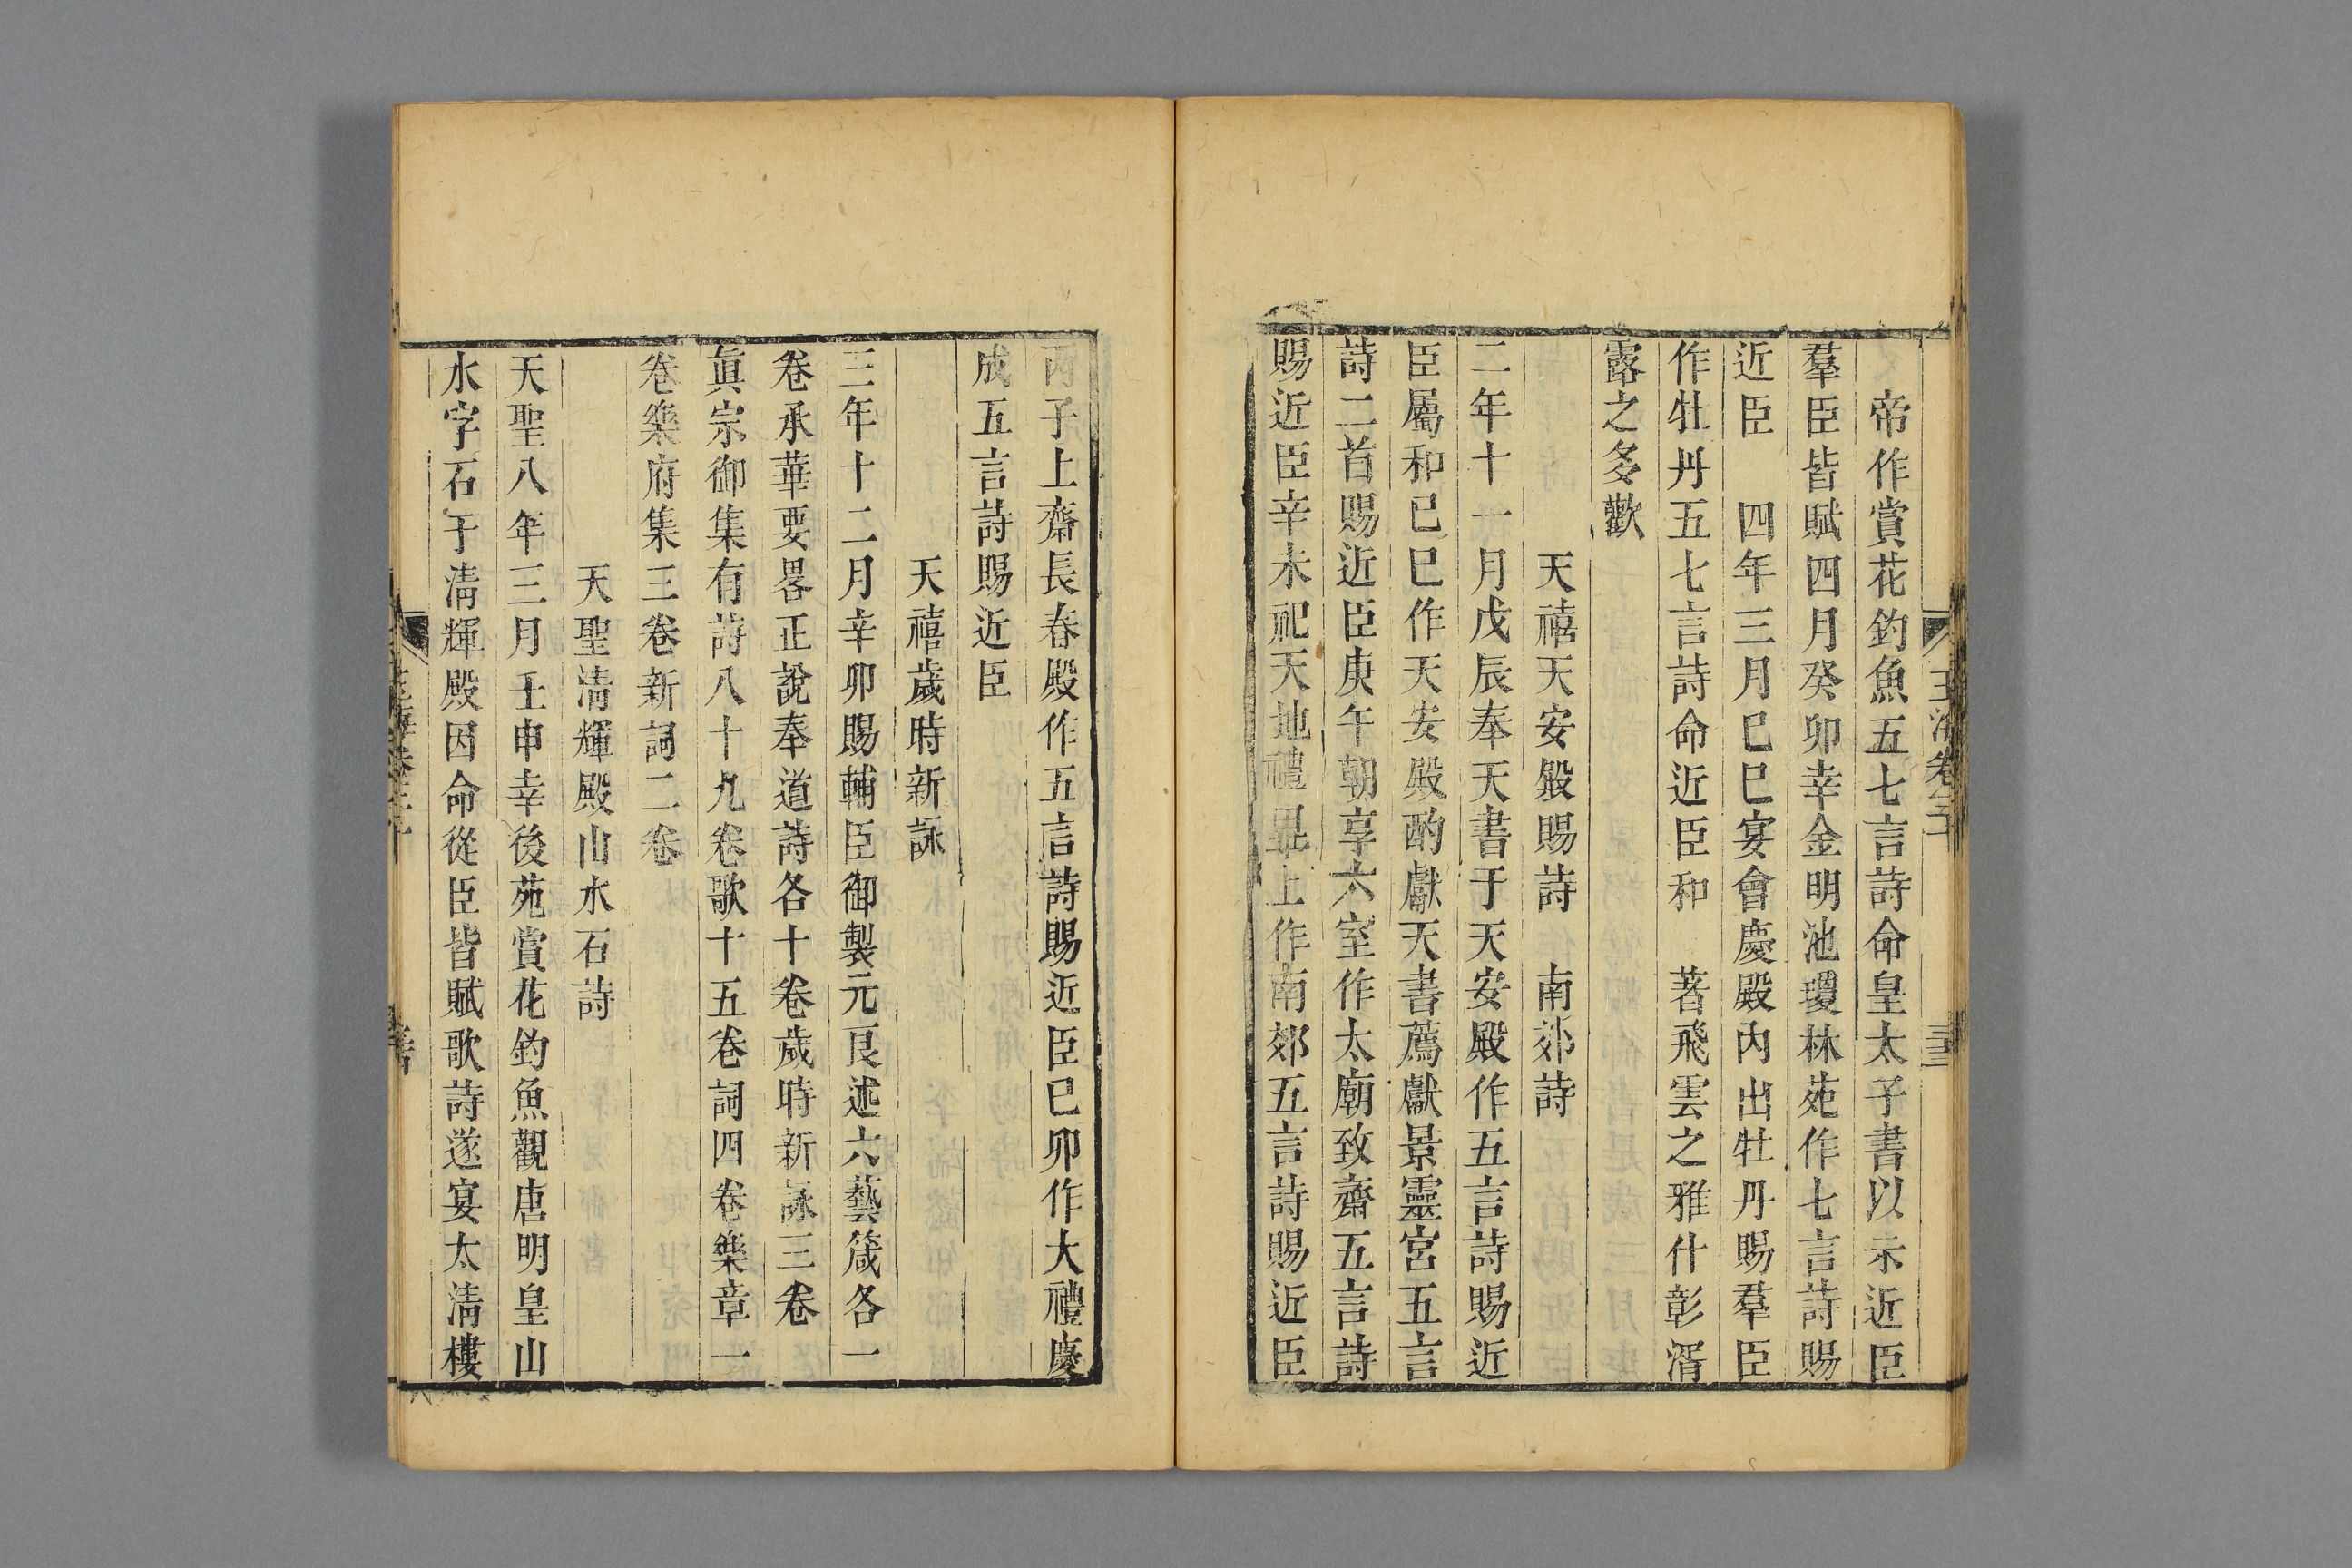 帝作賞花釣魚五七言詩命皇太子書以示近臣
羣臣皆賦四月癸卯幸金明池瓊林苑作七言詩賜
近臣　四年三月己巳宴會慶殿內出牡丹賜羣臣
作牡丹五七言詩命近臣和　著飛雲之雅什彰湑
露之多歡
天禧天安殿賜詩　南郊詩
二年十一月戊辰奉天書于天安殿作五言詩賜近
臣屬和己巳作天安殿酌獻天書薦獻景靈宮五言
詩二首賜近臣庚午朝享六室作太廟致齋五言詩
賜近臣辛未祀天地禮畢上作南郊五言詩賜近臣
丙子上齋長春殿作五言詩賜近臣己卯作大禮慶
成五言詩賜近臣
天禧歲時新詠
三年十二月辛卯賜輔臣御製元良述六藝箴各一
卷承華要畧正說奉道詩各十卷歲時新詠三卷
眞宗御集有詩八十九卷歌十五卷詞四卷樂章一
卷樂府集三卷新詞二卷
天聖淸輝殿山水石詩
天聖八年三月壬申幸後苑賞花釣魚觀唐明皇山
水字石于淸輝殿因命從臣皆賦歌詩遂宴太淸樓